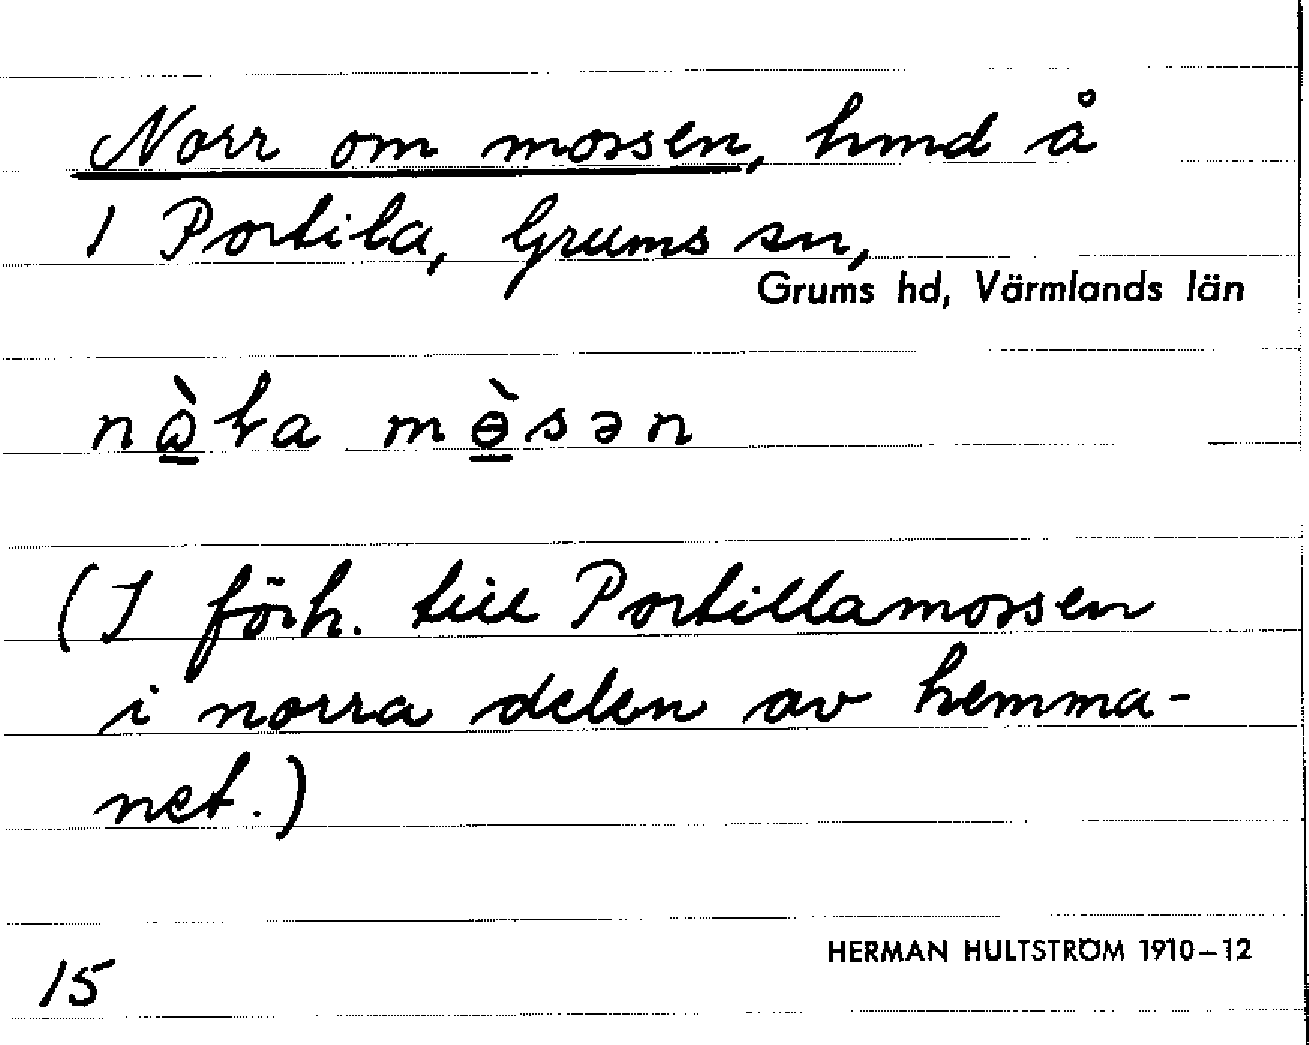 Norr om mossen, hmd å
1 Portila, Grums sn,
Grums hd, Värmlands län
nò̱ra mɵ̱̀sən
(I förh. till Portillamossen
i norra delen av hemma-
net.)
HERMAN HULTSTRÖM 1910–12
15